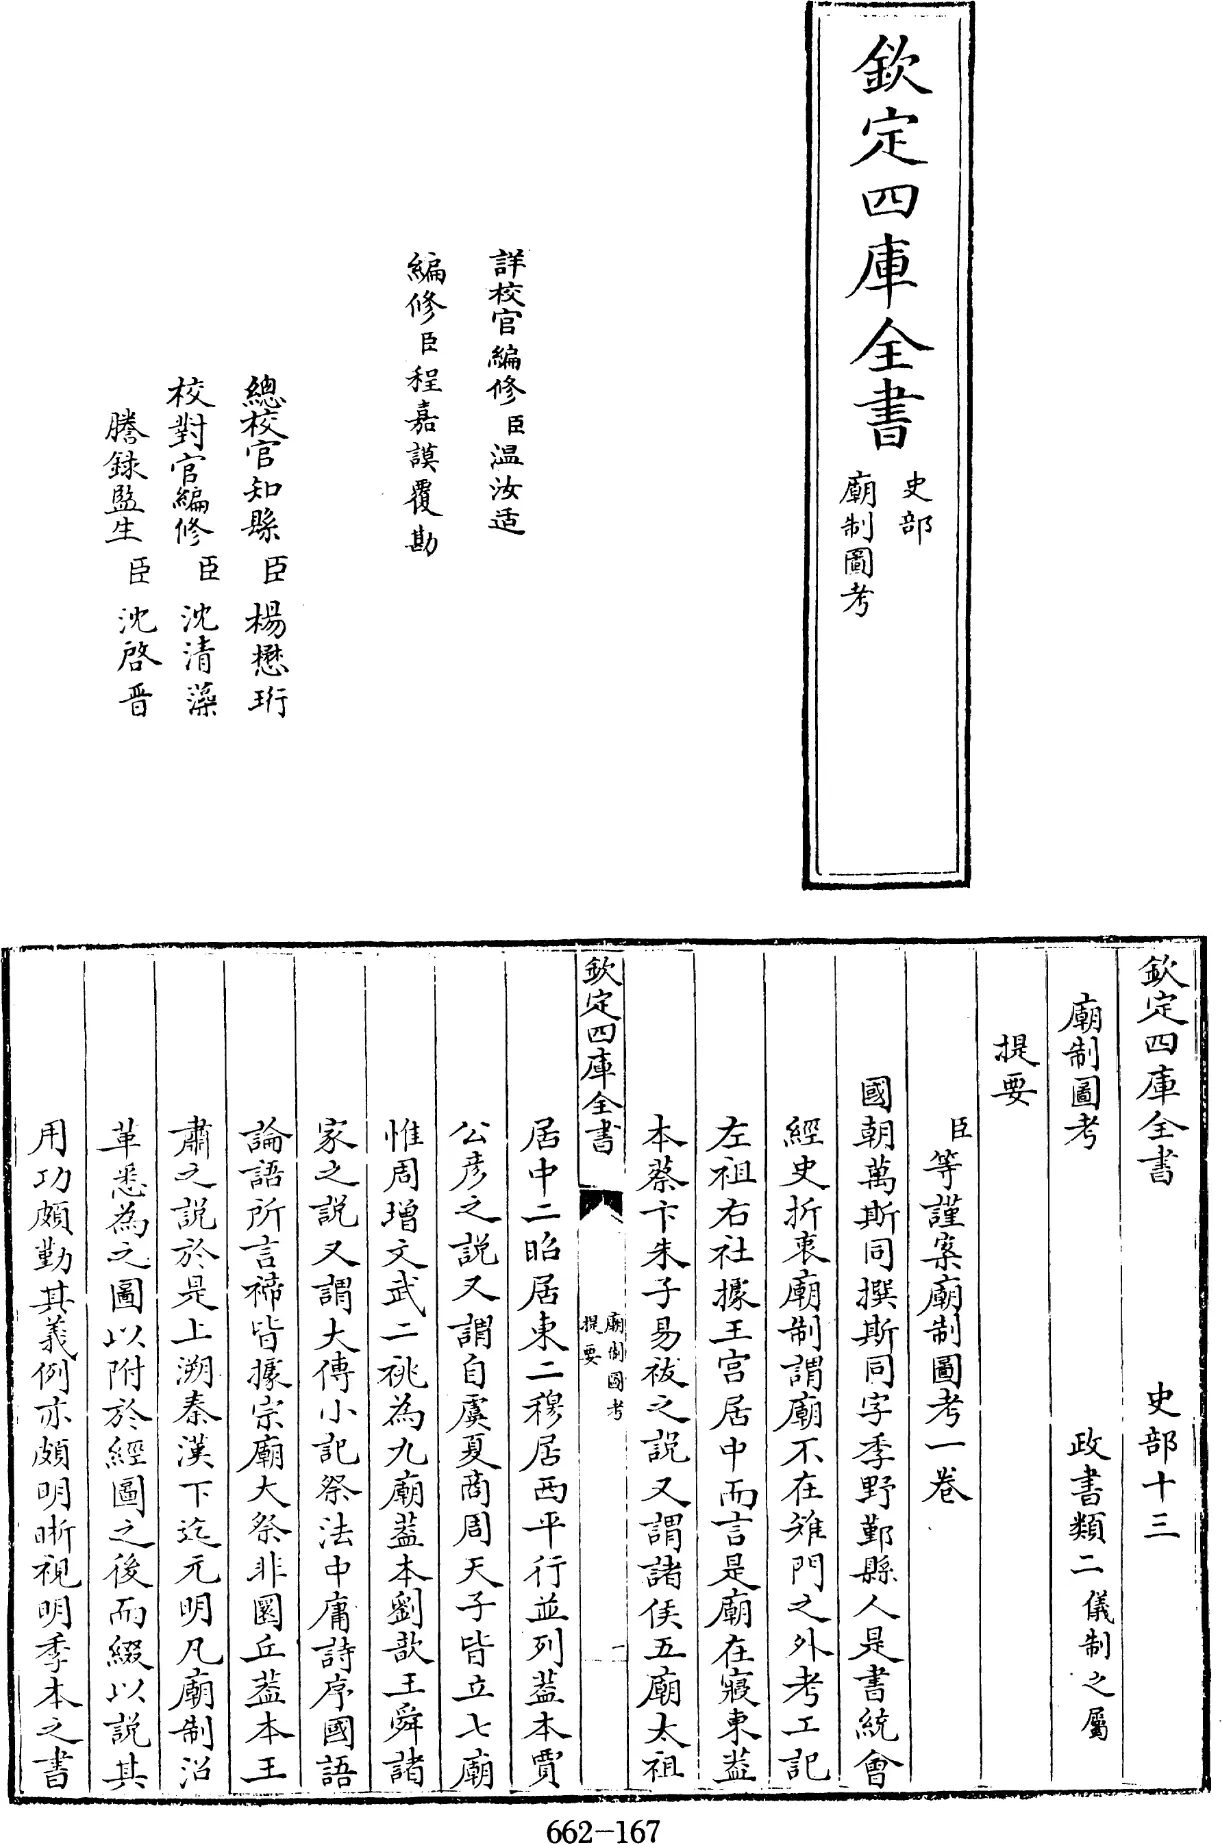 欽定四庫全書
史部
廟制圖考
詳校官編修臣温汝适
編修臣程嘉謨覆勘
總校官知縣臣楊懋珩
校對官編修臣沈清藻
謄録監生臣沈啓晋
欽定四庫全書 史部十三
廟制圖考 政書類二儀制之屬
提要
臣等謹案廟制圖考一卷
國朝萬斯同撰斯同字季野鄞縣人是書統會
經史折衷廟制謂廟不在雉門之外考工記
左祖右社據王宫居中而言是廟在寢東葢
本蔡卞朱子易祓之説又謂諸侯五廟太祖
欽定四庫全書
廟制圖考
提要
一
居中二昭居東二穆居西平行並列葢本賈
公彦之説又謂自虞夏商周天子皆立七廟
惟周增文武二祧為九廟葢本劉歆王舜諸
家之説又謂大傳小記祭法中庸詩序國語
論語所言禘皆據宗廟大祭非圜丘葢本王
肅之説於是上溯秦漢下迄元明凡廟制沿
革悉為之圖以附於經圖之後而綴以説其
用功頗勤其義例亦頗明晰視明季本之書
662-167